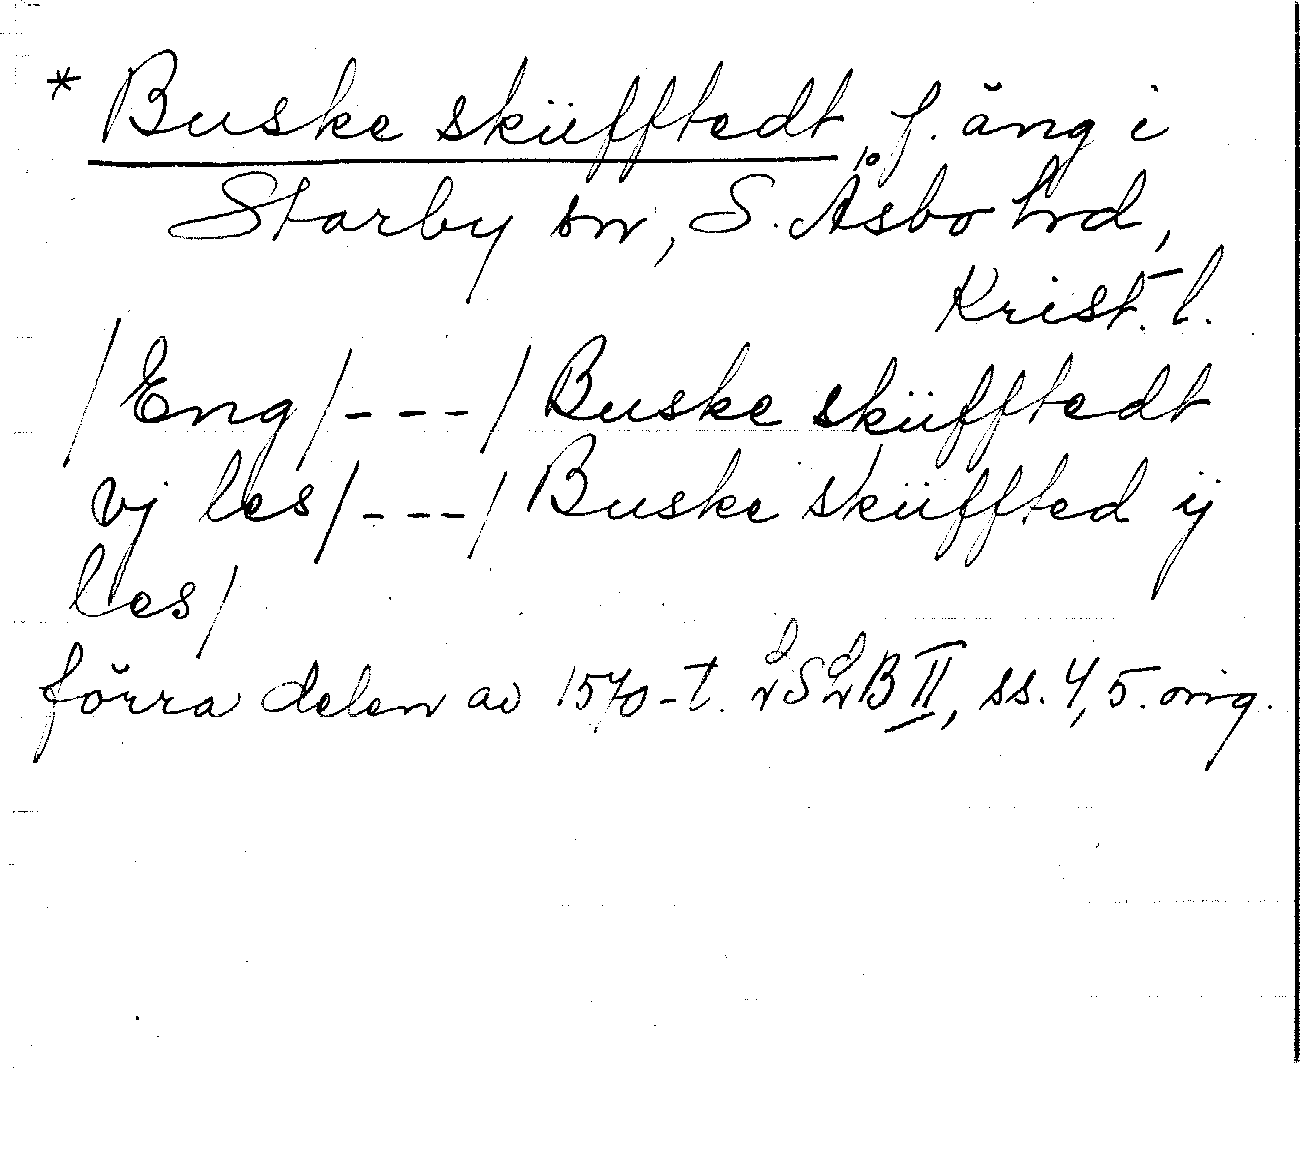 * Buske sküfftedt f. äng i
Starby sn, S. Åsbo hrd,
Krist. l.
/Eng/---/Buske sküfftedt
vj les/---/Buske sküffted ij
les/
förra delen av 1570-t. LSLB II, ss. 4, 5. orig.